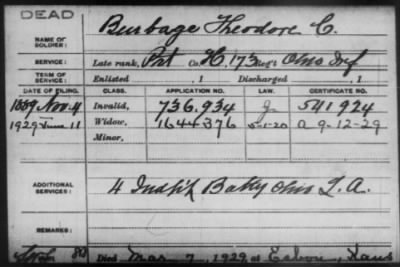 DEAD
NAME OF SOLDIER: Burbage Theodore C.
SERVICE: Late rank, Pvt Co. H, 173 Reg't Ohio Inf
TERM OF SERVICE: Enlisted , 1 Discharged , 1
DATE OF FILING. CLASS. APPLICATION NO. LAW. CERTIFICATE NO.
1889 Nov. 11 Invalid, 736,934 G 541924
1929 June 11 Widow, 1644376 5-1-20 A 9-12-29
Minor,
ADDITIONAL SERVICES: 4 Indp't Batty Ohio L.A.
REMARKS:
Died Mar 7, 1929, at Esbon, Kans